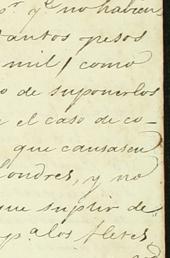 y no habien
tantos pesos
mil, como
o de suponerlos
el caso de co-
que causasen
Londres, y no
que suplir de
pa los fletes